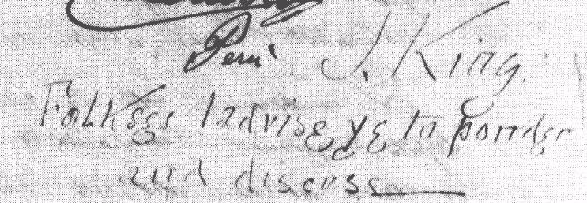 Peru J. King.
Folkses I advise ye to ponder
and discuss